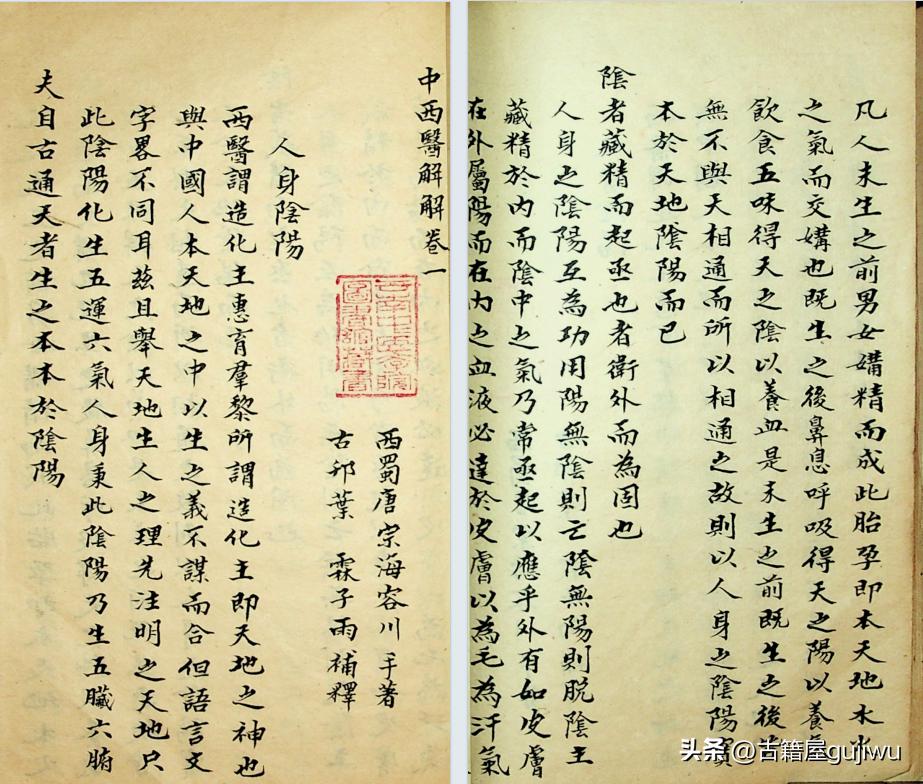 中西醫解解卷一
西蜀唐宗海容川手著
古邘葉霖子雨補釋
人身陰陽
西醫謂造化主惠育羣黎所謂造化主即天地之神也
與中國人本天地之中以生之義不謀而合但語言文
字畧不同耳茲且舉天地生人之理先注明之天地只
此陰陽化生五運六氣人身秉此陰陽乃生五臟六腑
夫自古通天者生之本本於陰陽
凡人未生之前男女媾精而成此胎孕即本天地水火
之氣而交媾也既生之後鼻息呼吸得天之陽以養氣
飲食五味得天之陰以養血是未生之前既生之後
無不與天相通而所以相通之故則以人身之陰陽實
本於天地陰陽而已
陰者藏精而起亟也者衛外而為固也
人身之陰陽互為功用陽無陰則亡陰無陽則脫陰主
藏精於內而陰中之氣乃常亟起以應乎外有如皮膚
在外屬陽而在內之血液必達於皮膚以為毛為汗氣
头条@古籍屋gujiwu